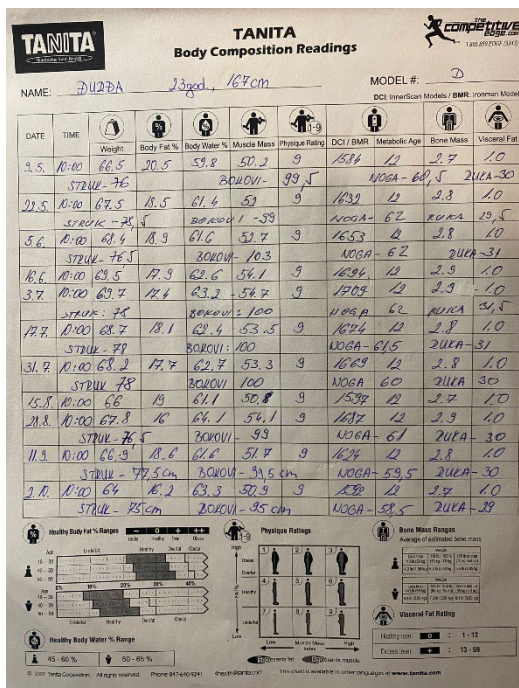 TANITA
TANITA
Body Composition Readings
the competitive edge.com
NAME: ĐUZDA 23god., 167cm MODEL #: D
DCI: InnerScan Models / BMR: Ironman Model
DATE TIME Weight Body Fat % Body Water % Muscle Mass Physique Rating DCI / BMR Metabolic Age Bone Mass Visceral Fat
9.5. 10:00 66.5 20.5 59.8 50.2 9 1584 12 2.7 1.0
STRUK - 76 BOKOVI - 99,5 NOGA - 60,5 RUKA - 30
22.5. 10:00 67.5 18.5 61.4 52 9 1632 12 2.8 1.0
STRUK - 75,5 BOKOVI - 99 NOGA - 62 RUKA 29,5
5.6. 10:00 68.4 18.9 61.6 52.7 9 1653 12 2.8 1.0
STRUK - 76.5 BOKOVI - 103 NOGA - 62 RUKA - 31
16.6. 10:00 69.5 17.9 62.6 54.1 9 1694 12 2.9 1.0
3.7. 10:00 69.7 17.4 63.2 54.7 9 1709 12 2.9 1.0
STRUK: 78 BOKOVI: 100 NOGA 62 RUKA 31,5
17.7. 10:00 68.7 18.1 62.4 53.5 9 1674 12 2.8 1.0
STRUK - 78 BOKOVI: 100 NOGA - 61,5 RUKA - 31
31.7. 10:00 68.2 17.7 62.7 53.3 9 1669 12 2.8 1.0
STRUK 78 BOKOVI 100 NOGA 60 RUKA 30
15.8. 10:00 66 19 61.1 50,8 9 1597 12 2.7 1.0
28.8. 10:00 67.8 16 64.1 54.1 9 1687 12 2.9 1.0
STRUK - 76,5 BOKOVI - 99 NOGA - 61 RUKA - 30
11.9. 10:00 66.9 18.6 61.6 51.7 9 1624 12 2.8 1.0
STRUK - 77,5cm BOKOVI - 99,5cm NOGA - 59,5 RUKA - 30
2.10. 10:00 64 16.2 63.3 50.9 9 12 2.7 1.0
STRUK - 75cm BOKOVI - 95cm NOGA - 58,5 RUKA - 29
Healthy Body Fat % Ranges
Physique Ratings
Bone Mass Ranges
Average of estimated bone mass
Visceral Fat Rating
Healthy level 0 : 1 - 12
Excess level + : 13 - 59
Healthy Body Water % Range
45 - 60 % 50 - 65 %
Represents fat Represents muscle
© 2009 Tanita Corporation. All rights reserved. Phone: 847-640-9241 4health@tanita.com This chart is available in other languages at www.tanita.com